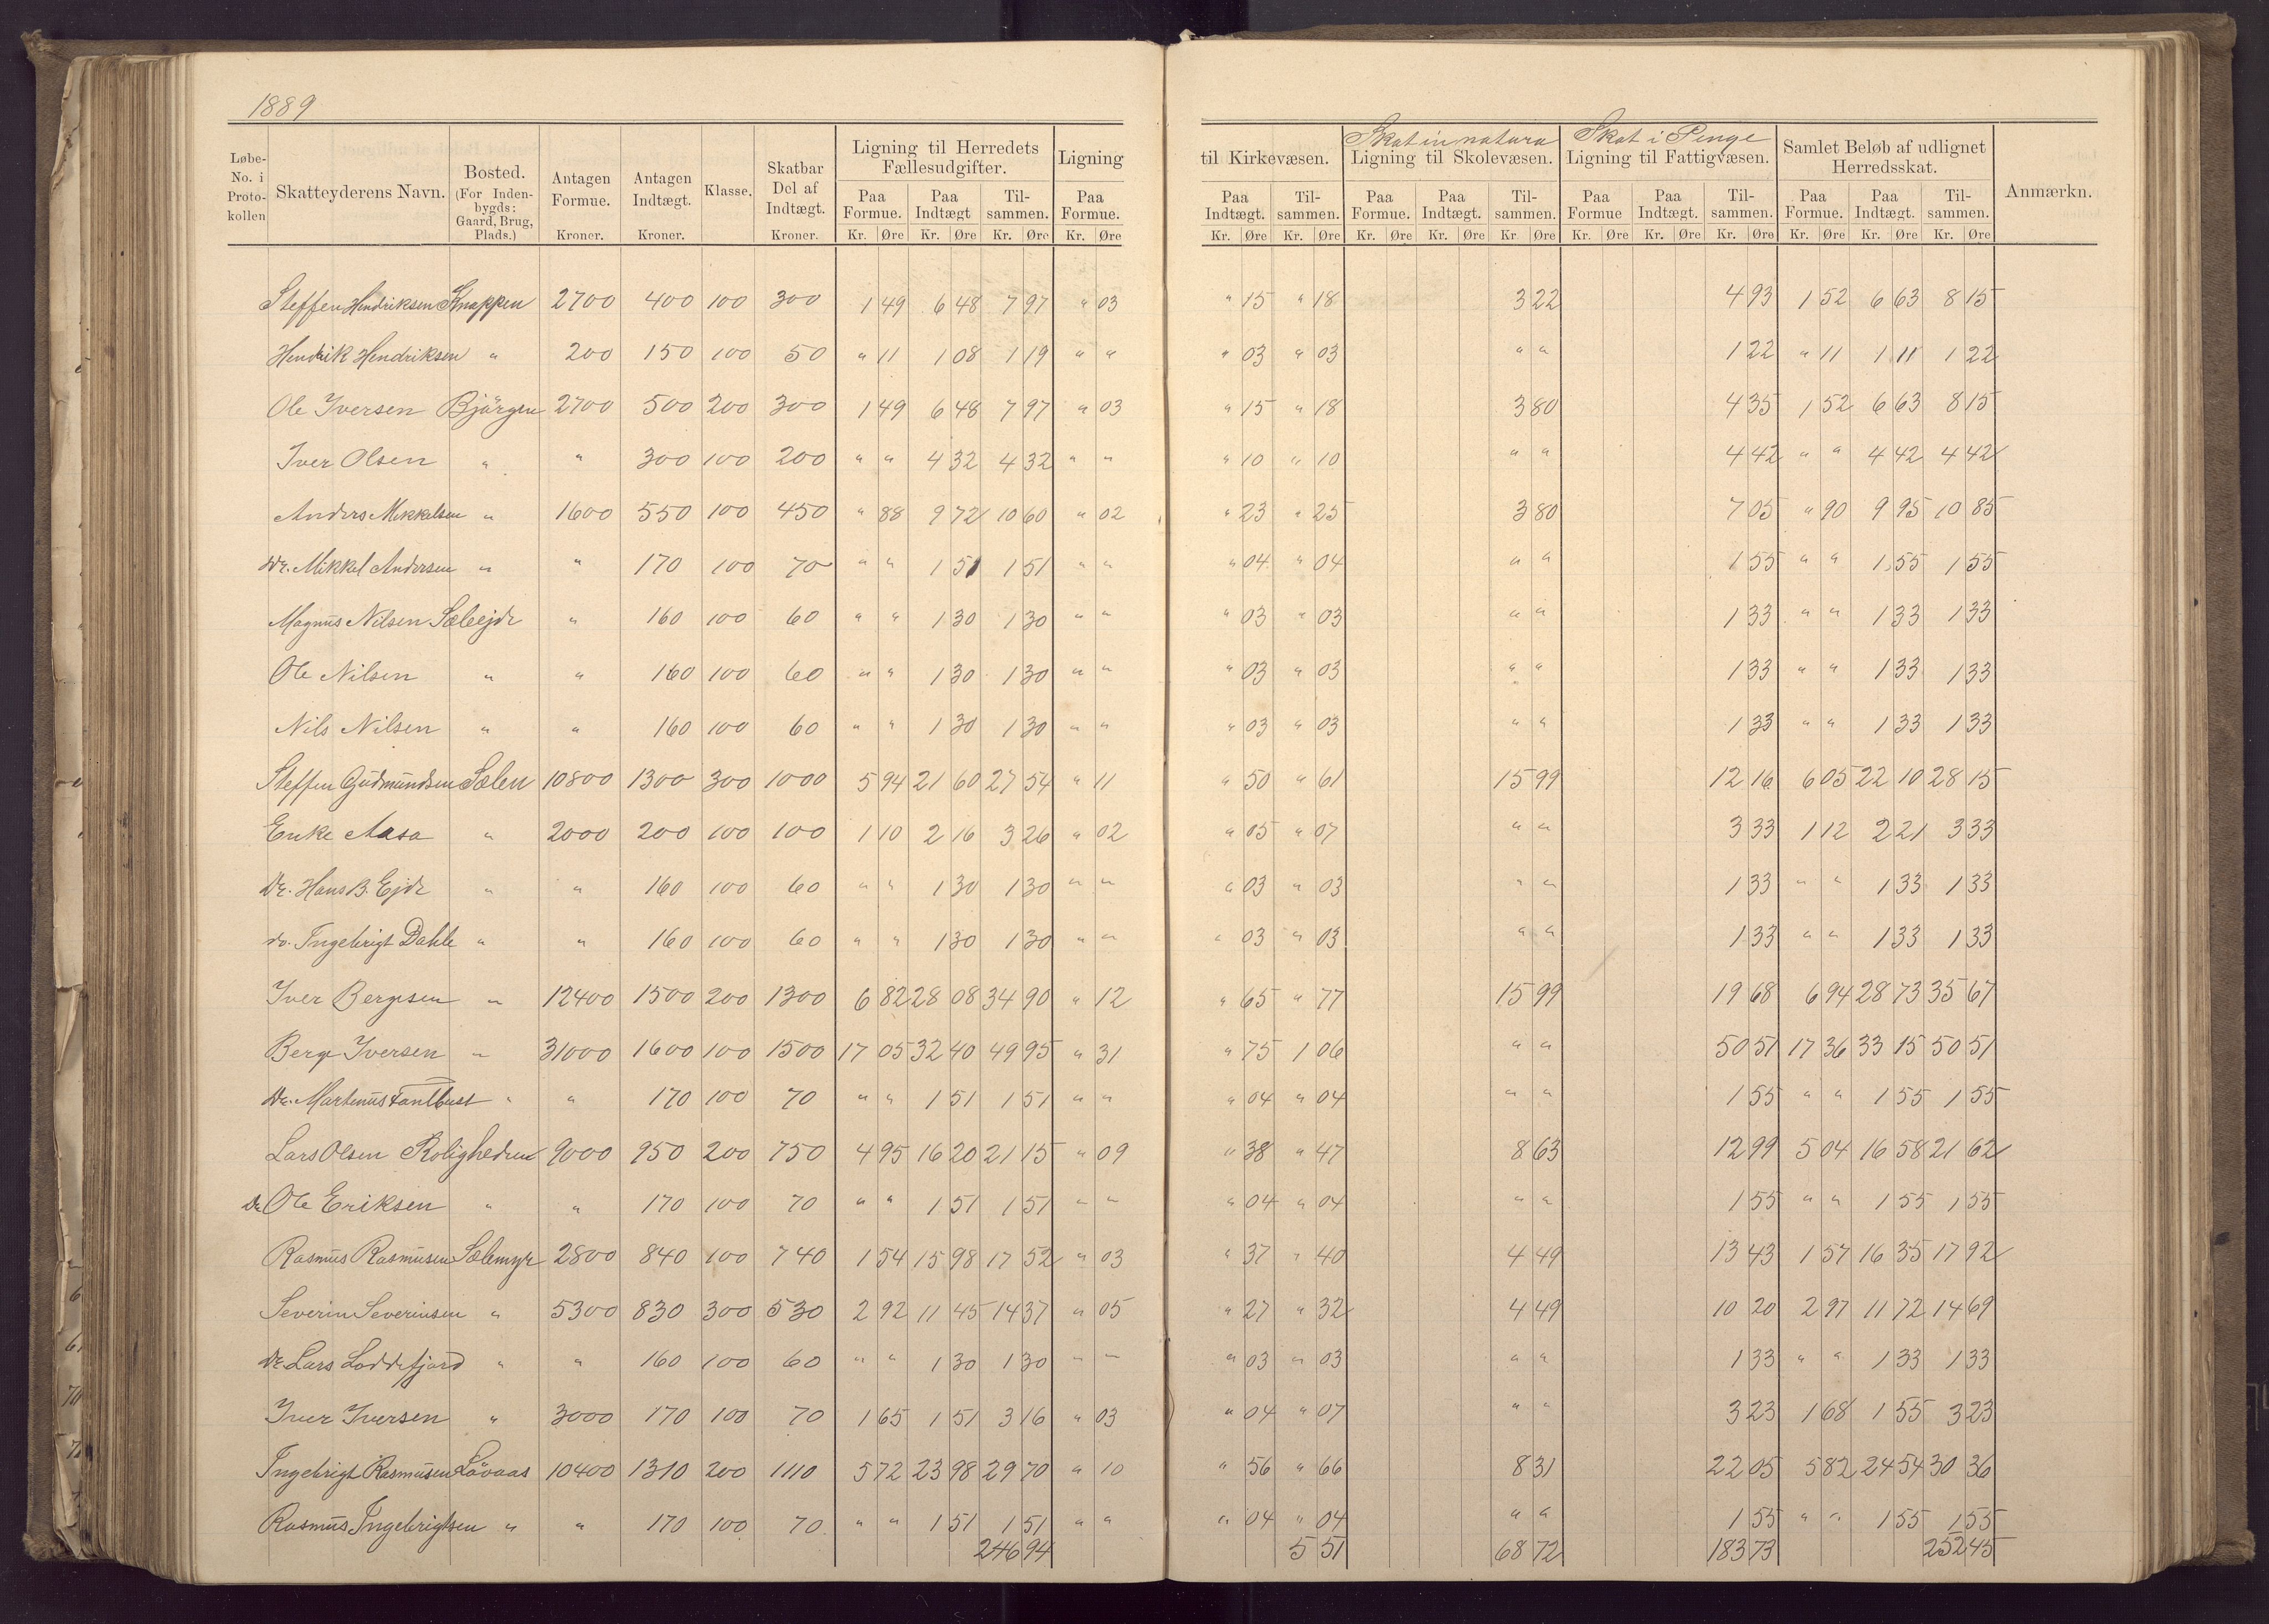 1889
Løbe-No. i Protokollen | Skatteyderens Navn. | Bosted. (For Indenbygds: Gaard, Brug, Plads.) | Antagen Formue. Kroner. | Antagen Indtægt. Kroner. | Klasse. | Skatbar Del af Indtægt. Kroner. | Ligning til Herredets Fællesudgifter. Paa Formue. Kr. Øre | Paa Indtægt Kr. Øre | Tilsammen. Kr. Øre | Ligning Paa Formue. Kr. Øre | til Kirkevæsen. Paa Indtægt. Kr. Øre | Tilsammen. Kr. Øre | Skat in natura Ligning til Skolevæsen. Paa Formue. Kr. Øre | Paa Indtægt. Kr. Øre | Tilsammen. Kr Øre | Skat i Penge Ligning til Fattigvæsen. Paa Formue Kr. Øre | Paa Indtægt. Kr. Øre | Tilsammen. Kr. Øre | Samlet Beløb af udlignet Herredsskat. Paa Formue. Kr. Øre | Paa Indtægt. Kr. Øre | Tilsammen. Kr. Øre | Anmærkn.
Steffen Hendriksen Knappen 2700 400 100 300 1 49 6 48 7 97 " 03 " 15 " 18 3 22 4 93 1 52 6 63 8 15
Hendrik Hendriksen " 200 150 100 50 " 11 1 08 1 19 " " " 03 " 03 " " 1 22 " 11 1 11 1 22
Ole Iversen Bjørgen 2700 500 200 300 1 49 6 48 7 97 " 03 " 15 " 18 3 80 4 35 1 52 6 63 8 15
Iver Olsen " " 300 100 200 " " 4 32 4 32 " " " 10 " 10 " " 4 42 " " 4 42 4 42
Anders Mikkelsen " 1600 550 100 450 " 88 9 72 10 60 " 02 " 23 " 25 3 80 7 05 " 90 9 95 10 85
Dr. Mikkel Andersen " " 170 100 70 " " 1 51 1 51 " " " 04 " 04 " " 1 55 " " 1 55 1 55
Magnus Nilsen Sæleejde " 160 100 60 " " 1 30 1 30 " " " 03 " 03 " " 1 33 " " 1 33 1 33
Ole Nilsen " " 160 100 60 " " 1 30 1 30 " " " 03 " 03 " " 1 33 " " 1 33 1 33
Nils Nilsen " " 160 100 60 " " 1 30 1 30 " " " 03 " 03 " " 1 33 " " 1 33 1 33
Steffen Gudmundsen Sælen 10800 1300 300 1000 5 94 21 60 27 54 " 11 " 50 " 61 15 99 12 16 6 05 22 10 28 15
Enke Aasa " 2000 200 100 100 1 10 2 16 3 26 " 02 " 05 " 07 " " 3 33 1 12 2 21 3 33
Dr. Hans B. Ejde " " 160 100 60 " " 1 30 1 30 " " " 03 " 03 " " 1 33 " " 1 33 1 33
do. Ingebrigt Dahle " " 160 100 60 " " 1 30 1 30 " " " 03 " 03 " " 1 33 " " 1 33 1 33
Iver Bergesen " 12400 1500 200 1300 6 82 28 08 34 90 " 12 " 65 " 77 15 99 19 68 6 94 28 73 35 67
Berge Iversen " 31000 1600 100 1500 17 05 32 40 49 95 " 31 " 75 1 06 " " 50 51 17 36 33 15 50 51
Dr. Martinus " " 170 100 70 " " 1 51 1 51 " " " 04 " 04 " " 1 55 " " 1 55 1 55
Lars Olsen Roligheden 9000 950 200 750 4 95 16 20 21 15 " 09 " 38 " 47 8 63 12 99 5 04 16 58 21 62
Dr. Ole Eriksen " " 170 100 70 " " 1 51 1 51 " " " 04 " 04 " " 1 55 " " 1 55 1 55
Rasmus Rasmusen Sælemyr 2800 840 100 740 1 54 15 98 17 52 " 03 " 37 " 40 4 49 13 43 1 57 16 35 17 92
Severin Severinsen " 5300 830 300 530 2 92 11 45 14 37 " 05 " 27 " 32 4 49 10 20 2 97 11 72 14 69
Dr. Lars Loddefjord " " 160 100 60 " " 1 30 1 30 " " " 03 " 03 " " 1 33 " " 1 33 1 33
Iver Iversen " 3000 170 100 70 1 65 1 51 3 16 " 03 " 04 " 07 " " 3 23 1 68 1 55 3 23
Ingebrigt Rasmusen Løvaas 10400 1310 200 1110 5 72 23 98 29 70 " 10 " 56 " 66 8 31 22 05 5 82 24 54 30 36
Rasmus Ingebrigtsen " " 170 100 70 " " 1 51 1 51 " " " 04 " 04 " " 1 55 " " 1 55 1 55
246 94 5 51 68 72 183 73 252 45